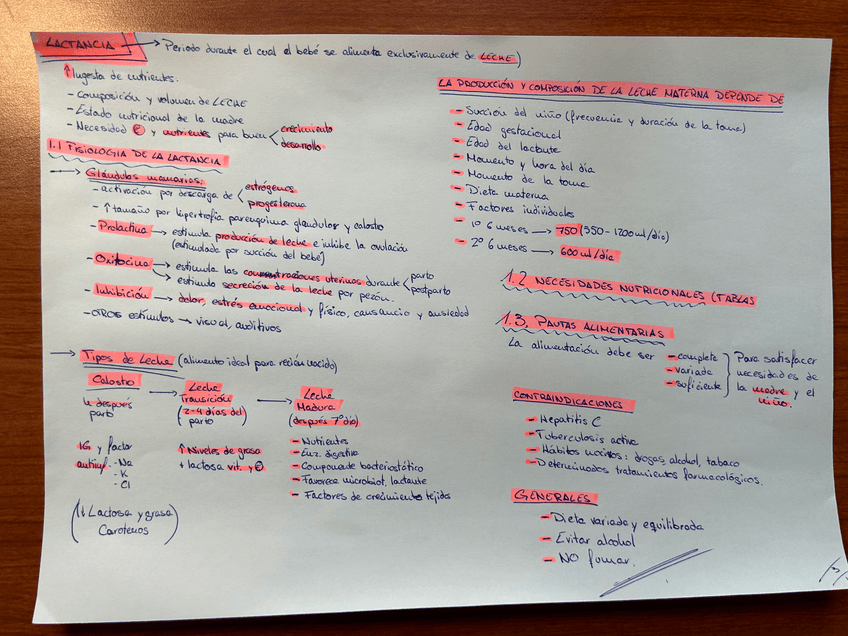 LACTANCIA → Periodo durante el cual el bebé se alimenta exclusivamente de LECHE)
↑ Ingesta de nutrientes:
- Composición y volumen de LECHE
- Estado nutricional de la madre
- Necesidad E y nutrientes para buen < crecimiento
desarrollo
1.1 FISIOLOGIA DE LA LACTANCIA
→ Glándulas mamarias:
- activación por descarga de < estrógenos
progesterona
- ↑ tamaño por hipertrofia parenquima glandular y calostro
- Prolactina → estimula producción de leche e inhibe la ovulación
(estimulada por succión del bebé)
- Oxitocina → estimula las contracciones uterinas durante < parto
postparto
→ estimula secreción de la leche por pezón.
- Inhibición → dolor, estrés emocional y físico, cansancio y ansiedad
- OTROS estímulos → visual, auditivos
→ Tipos de Leche (alimento ideal para recién nacido)
Calostro → Leche Transición → Leche Madura
después parto
(2-4 días del parto
(después 7º día)
IG y factor
- Na
- K
- Cl
(↓ Lactosa y grasa
Carotenos)
↑ Niveles de grasa
+ lactosa vit. y E
- Nutrientes
- Enz. digestiva
- Componente bacteriostático
- Favorece microbiot. lactante
- Factores de crecimiento tejidos
LA PRODUCCIÓN Y COMPOSICIÓN DE LA LECHE MATERNA DEPENDE DE
- Succión del niño (frecuencia y duración de la toma)
- Edad gestacional
- Edad del lactante
- Momento y hora del día
- Momento de la toma
- Dieta materna
- Factores individuales
- 1º 6 meses → 750 (550-1200ml/día)
- 2º 6 meses → 600ml/día
1.2 NECESIDADES NUTRICIONALES (TABLAS
1.3. PAUTAS ALIMENTARIAS
La alimentación debe ser - completa
- variada
- suficiente
} Para satisfacer
necesidades de
la madre y el
niño.
CONTRAINDICACIONES
- Hepatitis C
- Tuberculosis activa
- Hábitos nocivos: drogas, alcohol, tabaco
- Determinados tratamientos farmacológicos.
GENERALES
- Dieta variada y equilibrada
- Evitar alcohol
- NO fumar.